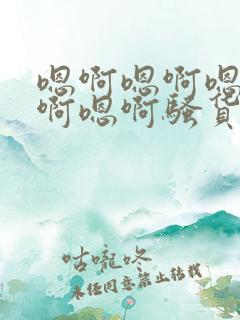 嗯啊嗯啊嗯
啊嗯啊骚货
咕嚨咚
未经同意禁止转载